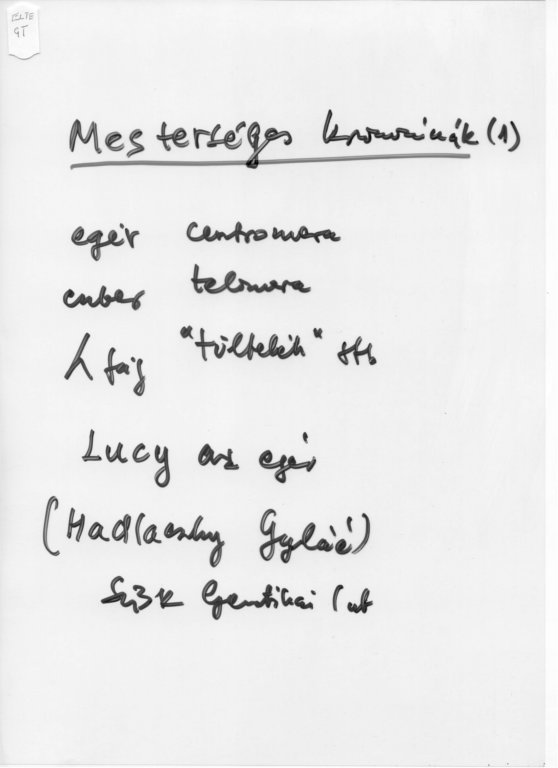 ELTE
GT
Mesterséges kromoszómák (1)
egér centromera
ember telomera
λ fág "töltelék" stb
Lucy az egér
(Hadlaczky Gyuláé)
SzBK Genetikai Int